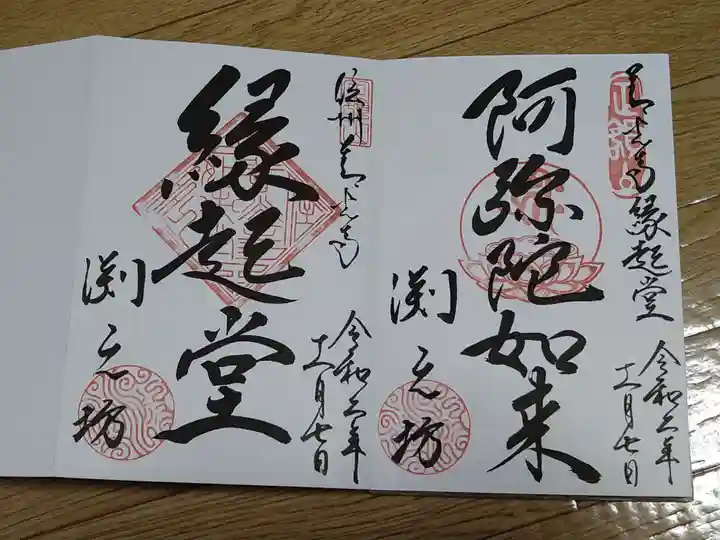 善光寺縁起堂
令和六年
十一月七日
阿弥陀如来
渕之坊
信州善光寺
令和六年
十一月七日
縁起堂
渕之坊